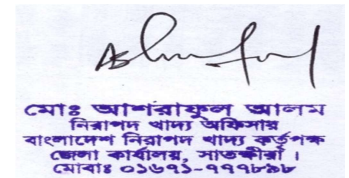 মোঃ আশরাফুল আলম
নিরাপদ খাদ্য অফিসার
বাংলাদেশ নিরাপদ খাদ্য কর্তৃপক্ষ
জেলা কার্যালয়, সাতক্ষীরা ।
মোবাঃ ০১৬৭১-৭৭৭৮৯৮